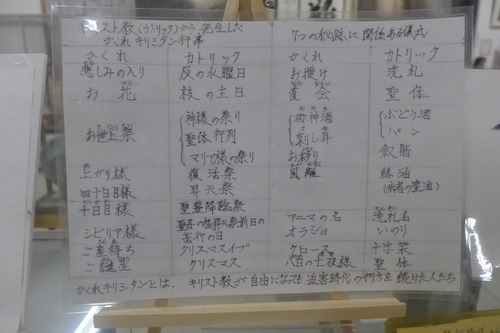 キリスト教(カトリック)から発生した
かくれキリシタン行事
7つの秘跡に関係ある儀式
かくれ カトリック かくれ カトリック
悲しみの入り 灰の水曜日 お授け 洗礼
お花 枝の主日 直会 聖体
お世上祭 神様の祭り 御神酒 ぶどう酒
聖体行列 刺し耳 パン
マリヤ様の祭り お移り 叙階
上がり様 復活祭 風離 終油
四十日目様 昇天祭 (病者の塗油)
十日目様 聖霊降臨祭 アニマの名 洗礼名
苦行の日 オラショ いのり
シビリア様 クリスマスイブ クロース 十字架
ご産待ち クリスマス 聖体
ご誕生
かくれキリシタンとは、キリスト教が自由になっても、迫害時代のやり方を続けた人たち